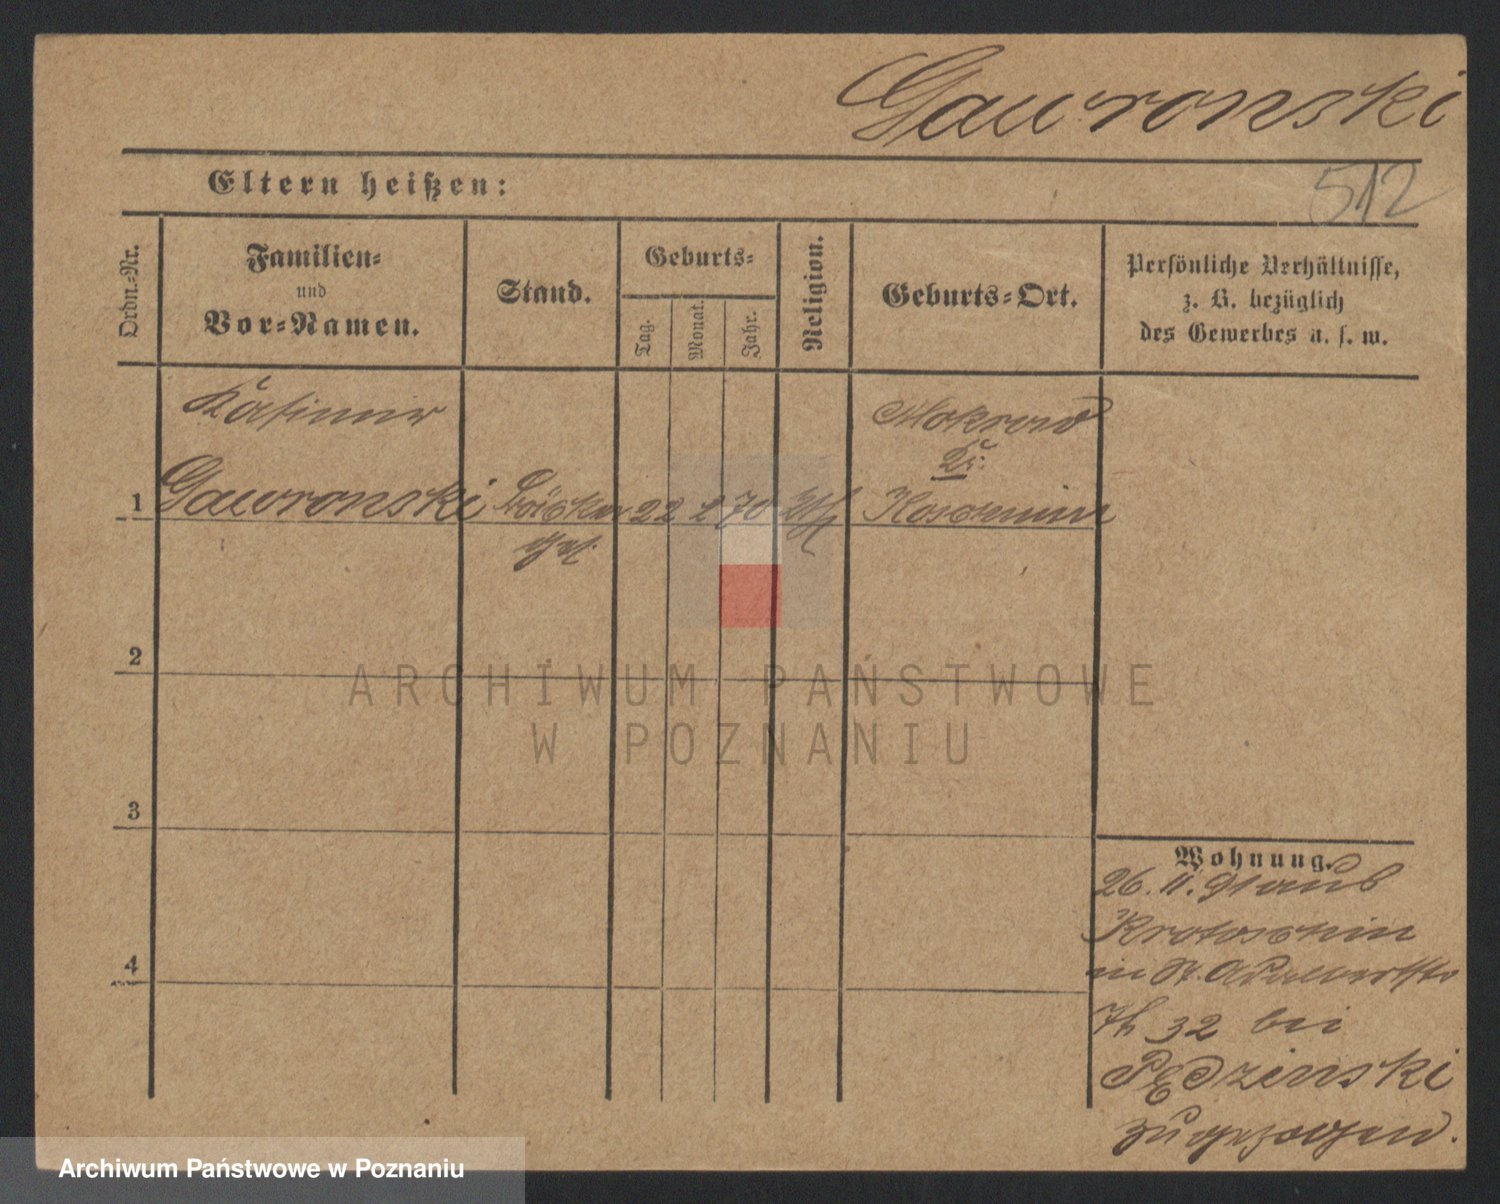 Gawronski
Eltern heißen:
512
Ordn.=Nr.
Familien=
und
Vor=Namen.
Stand.
Geburts=
Tag.
Monat.
Jahr.
Religion.
Geburts=Ort.
Persönliche Verhältnisse,
z. B. bezüglich
des Gewerbes u. s. w.
Kasimir
Mokronos
Kr:
1
Gawronski
22 2 70
Koschmin
2
3
4
Wohnung.
26.11.91 aus
Krotoschin
in St. Adalbertstr
32 bei
Pędzinski
zugezogen.
ARCHIWUM PAŃSTWOWE
W POZNANIU
Archiwum Państwowe w Poznaniu